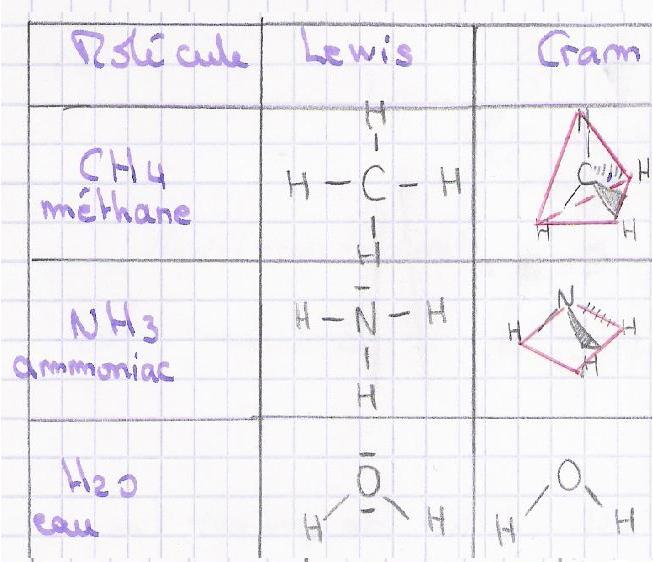 Molécule Lewis Cram
H
CH4 H - C - H
méthane
H
H
C H
H H
NH3 H - N - H
ammoniac
H
N
H H
H
H2O O
eau H H
O
H H